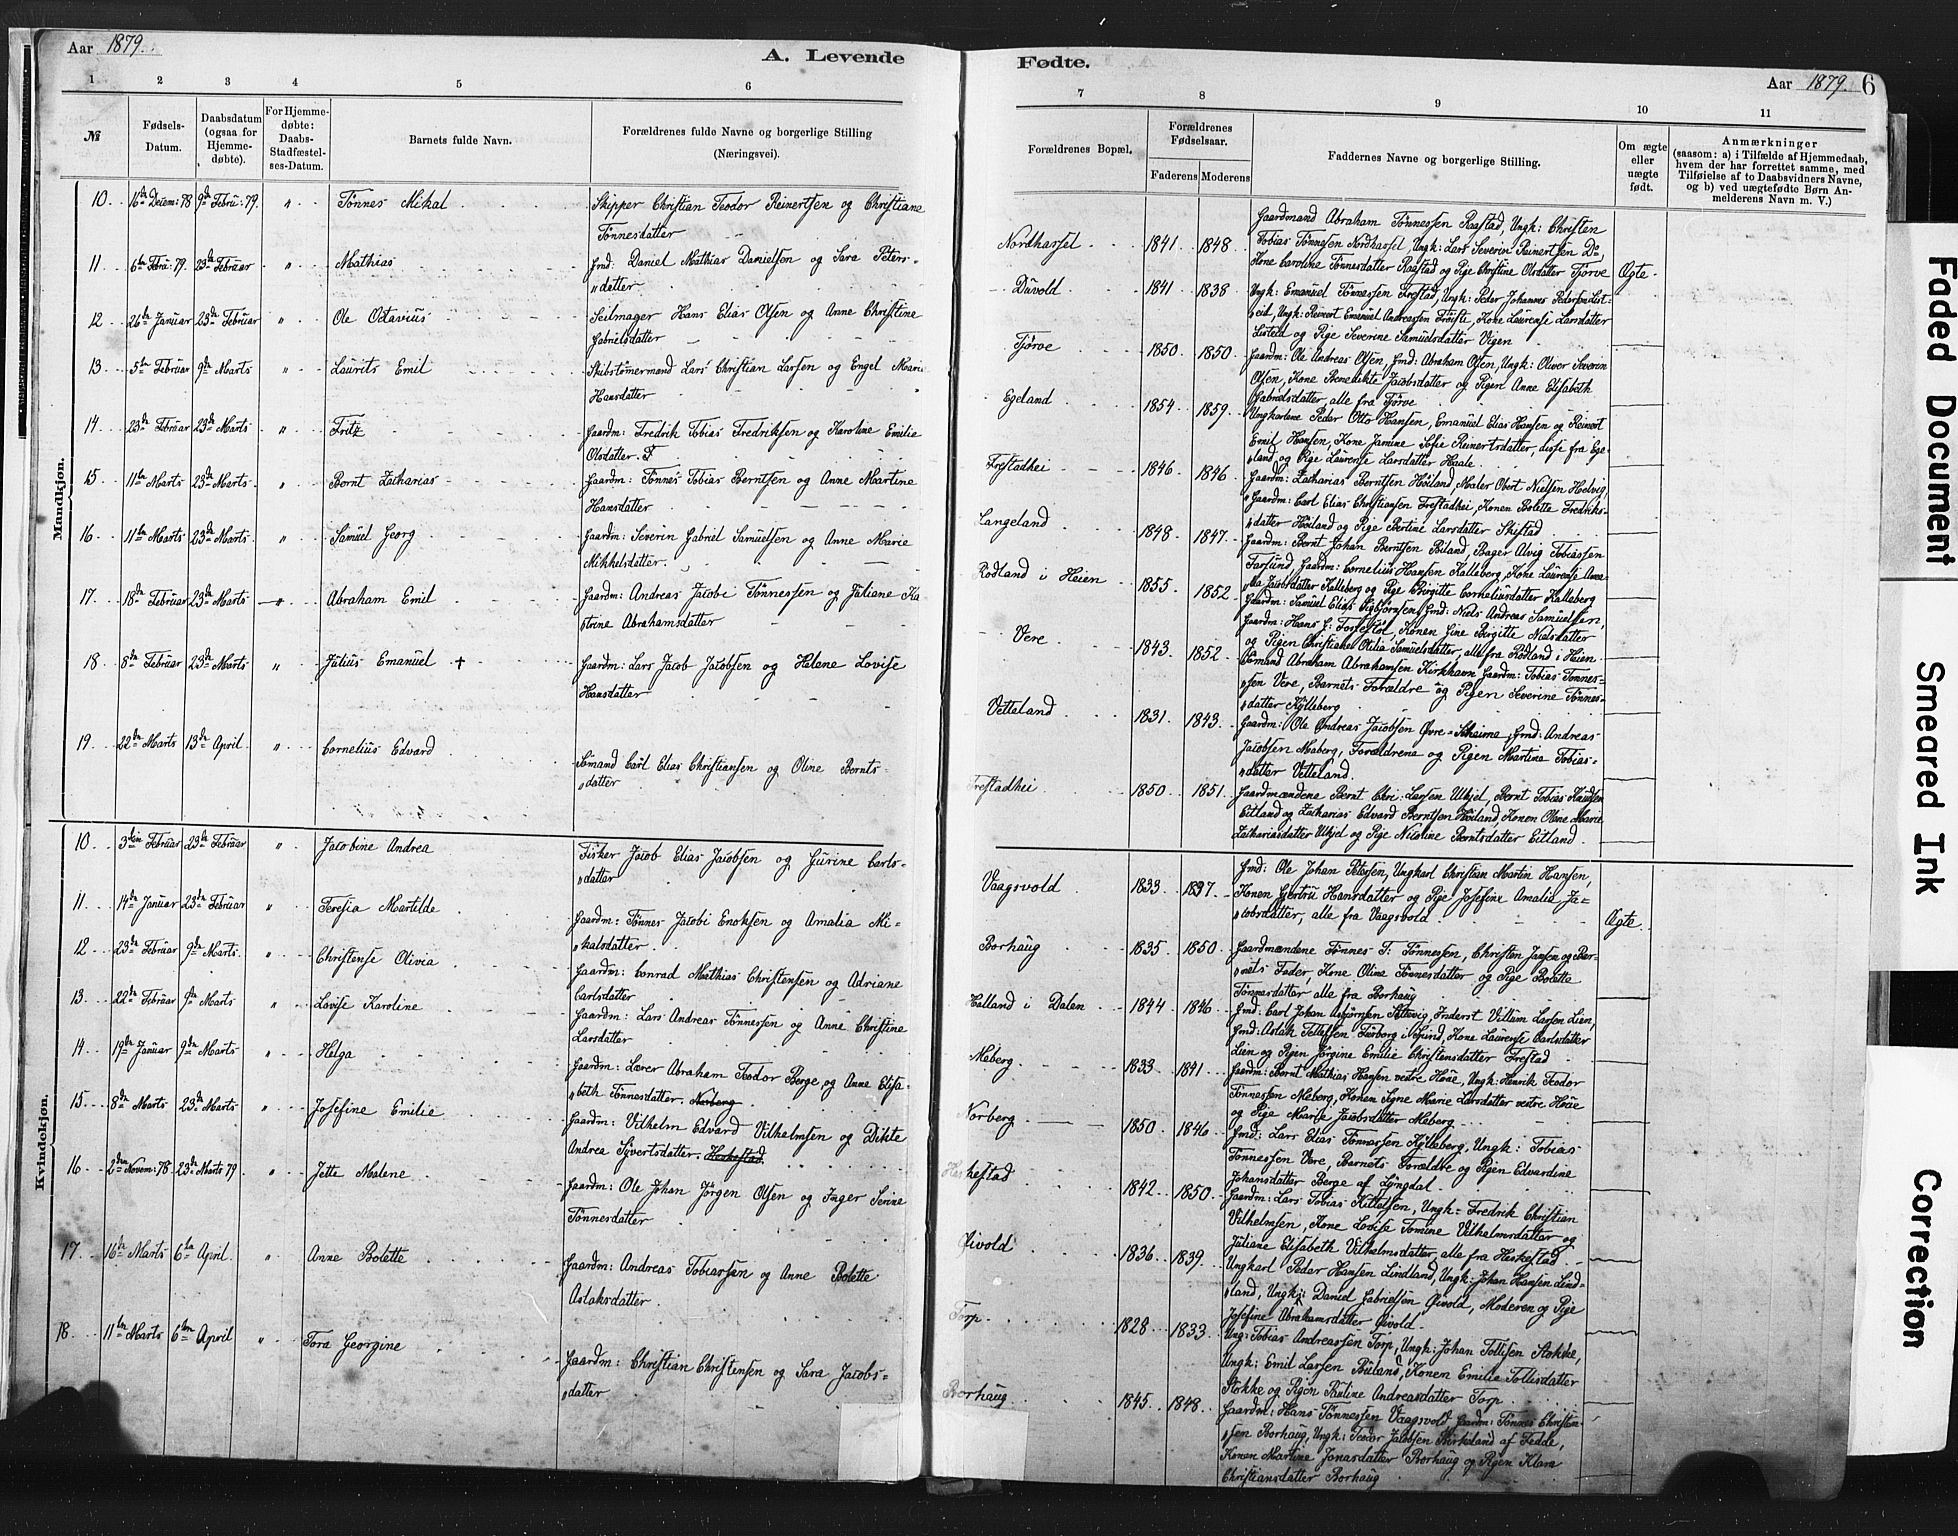 Aar 1879.
A. Levende
Fødte.
Aar 1879. 6
1 2 3 4 5 6
7 8 9 10 11
№
Fødsels-
Datum.
Daabsdatum
(ogsaa for
Hjemme-
døbte).
For Hjemme-
døbte:
Daabs-
Stadfæstel-
ses-Datum.
Barnets fulde Navn.
Forældrenes fulde Navne og borgerlige Stilling
(Næringsvei).
Forældrenes Bopæl.
Forældrenes
Fødselsaar.
Faderens Moderens
Faddernes Navne og borgerlige Stilling.
Om ægte
eller
uægte
født.
Anmærkninger
(saasom: a) i Tilfælde af Hjemmedaab,
hvem der har forrettet samme, med
Tilføielse af to Daabsvidners Navne,
og b) ved uægtefødte Børn An-
melderens Navn m. V.)
Mandkjøn.
10. 16de Decem: 78 9de Febru: 79. " Tønnes Mikal Skipper Christian Teodor Reinertsen og Christiane
Tønnesdatter
11 6te Febru: 79. 23de Februar " Mathias Gmd: Daniel Mathias Danielsen og Sara Peters-
"datter
12 26de Januar 23de Februar " Ole Octavius Seilmager Hans Elias Olsen og Anne Christine
Gabrielsdatter
13 5te Februar 9de Marts " Laurits Emil Skibstømermand Lars Christian Larsen og Engel Marie
Hansdatter
14 23de Februar 23de Marts " Fritz Gaardm: Fredrik Tobias Fredriksen og Karoline Emilie
Olsdatter. F
15 11te Marts 23de Marts " Bernt Zacharias Gaardm: Tønnes Tobias Berntsen og Anne Martine
Hansdatter
16 11te Marts 23de Marts " Samuel Georg Gaardm: Severin Gabriel Samuelsen og Anne Marie
Mikkelsdatter.
17. 18de Februar 23de Marts " Abraham Emil Gaardm: Andreas Jacobi Tønnessen og Juliane Ka
"trine Abrahamsdatter
18 8de Februar 23de Marts " Julius Emanuel + Gaardm: Lars Jacob Jacobsen og Helene Lovise
Hansdatter
19 22de Marts 13de April " Cornelius Edvard Sømand Carl Elias Christiansen og Oline Bernts-
"datter
Kvindekjøn.
10 3die Februar 23de Februar " Jacobine Andrea Fisker Jacob Elias Jacobsen og Gurine Carls-
"datter
11. 14de Januar 23de Februar " Teresia Martilde Gaardm: Tønnes Jacobi Enoksen og Amalia Mi-
"kalsdatter
12 23de Februar 9de Marts " Christense Olivia Gaardm: Conrad Mathias Christensen og Adriane
Carlsdatter
13. 22de Februar 9de Marts " Lovise Karoline Gaardm: Lars Andreas Tønnessen og Anne Christine
Larsdatter
14 19de Januar 9de Marts " Helga Gaardm: Lærer Abraham Teodor Berge, og Anne Elisa-
"beth Tønnesdatter. Norberg
15 8de Marts 23de Marts " Josefine Emilie Gaardm: Vilhelm Edvard Vilhelmsen og Dikte
Andrea Syvertsdatter. Heskestad
16 2den Novem: 78 23de Marts 79 " Jette Malene Gaardm: Ole Johan Jørgen Olsen og Inger Serine
Tønnesdatter
17 16de Marts 6te April " Anne Bolette Gaardm: Andreas Tobiassen og Anne Bolette
Aslaksdatter
18. 11te Marts 6te April " Tora Georgine Gaardm: Christian Christensen og Sara Jacobs-
"datter
Nordhassel 1841 1848
Gaardmand Abraham Tønnessen Raastad, Ungk: Christen
Tobias Tønnesen Nordhassel Ungk: Lars Severin Reinertsen Do
Kone Caroline Tønnesdatter Raastad og Pige Christine Olsdatter Tjørve Ægte
Duvold 1841 1838
Ungk: Emanuel Tønnessen Frestad, Ungk: Peder Johannes Pedersen List-
"eid, Ungk: Reinert Emanuel Andreassen Frøiste, Kone Laurense Larsdatter
Listeid og Pige Severine Samuelsdatter Vigen
Tjørve 1850 1850
Gaardm: Ole Andreas Olsen, Gmd: Abraham Olsen, Ungk: Oliver Severin
Olsen, Kone Benedikte Jacobsdatter og Pigen Anne Elisabeth
Gabrielsdatter, alle fra Tjørve
Egeland 1854 1859
Ungkarlene Peder Otto Hansen, Emanuel Elias Hansen og Reinert
Emil Hansen, Kone Jamine Sofie Reinertsdatter, disse fra Ege-
"land og Pige Laurense Larsdatter Haale
Frestadhei 1846 1846
Gaardm: Zacharias Berntsen Høiland, Maler Obert Nielsen Helvig
Gaardm: Carl Elias Christiansen Frestadhei, Konen Bolette Fredriks-
"datter Høiland og Pige Bertine Larsdatter Skeistad
Langeland 1848 1847
Gaardm: Bernt Johan Berntsen Biland, Bager Alvig Tobiassen
Farsund, Gaardm: Cornelius Hansen Kalleberg, Kone Laurense Ama-
"lia Jacobsdatter Kalleberg og Pige Birgitte Corneliusdatter Kalleberg
Rødland i Heien 1855 1852
Gaardm: Samuel Elias Sigbjørnsen, Gmd: Niels Andreas Samuelsen,
og Pigen Christiane Otilia Samuelsdatter, alle fra Rødland i Heien
Vere 1843 1852
Sømand Abraham Abrahamsen Kirkhavn Gaardm: Tobias Tønnes-
"sen Vere, Barnets Forældre og Pigen Severine Tønnes-
"datter Kylleberg
Vetteland 1831 1843
Gaardm: Ole Andreas Jacobsen Øvre-Skeime, Gmd: Andreas
Jacobsen Maberg, Forældrene og Pigen Martine Tobias-
"datter Vetteland.
Frestadhei 1850 1851
Gaardmændene Bernt Chri: Larsen Ulgjel, Bernt Tobias Knudsen
Eitland og Zacharias Edvard Berntsen Høiland, Konen Oline Marie
Zachariasdatter Ulgjel og Pige Nicoline Berntsdatter Eitland
Vaagsvold 1833 1837
Gmd: Ole Johan Petersen, Ungkarl Christian Martin Hansen,
Konen Gjertru Hansdatter og Pige Josefine Amalie Ja-
"cobsdatter, alle fra Vaagsvold Ægte.
Borhaug 1835 1850
Gaardmændene Tønnes T: Tønnessen, Christen Jansen og Bar-
"nets Fader, Kone Oline Tønnesdatter og Pige Bolette
Tønnesdatter, alle fra Borhaug
Halland i Dalen 1844 1846
Gmd: Carl Johan Asbjørnsen Sellevig, Inderst Villum Larsen Lien,
Gmd: Aslak Tellefsen Turborg i Søgund, Kone Laurense Carlsdatter
Lien og Pigen Jørgine Emilie Christensdatter Frestad
Meberg 1833 1841
Gaardm: Bernt Mathias Hansen vestre Høie, Ungk: Henrik Teodor
Tønnessen Meberg, Konen Signe Marie Larsdatter vestre Høie
og Pige Marie Jacobsdatter Meberg
Norberg 1850 1846
Gmd: Lars Elias Tønnessen Kylleberg, Ungk: Tobias
Tønnessen Vere, Barnets Forældre og Pigen Edvardine
Johansdatter Berge af Lyngdal
Heskestad 1842 1850
Gaardm: Lars Tobias Kittelsen, Ungk: Fredrik Christian
Vilhelmsen, Kone Lovise Tomine Vilhelmsdatter og
Juliane Elisabeth Vilhelmsdatter, alle fra Heskestad
Qvivold 1836 1839
Ungkarl Peder Hansen Lindland, Ungk: Johan Hansen Lind-
"land, Ungk: Daniel Gabrielsen Qvivold, Moderen og Pige
Josefine Abrahamsdatter Qvivold
Torp 1828 1833
Ung: Tobias Andreassen Torp, Ungk: Johan Tollisen Stokke,
Ungk: Emil Larsen Buland, Konen Emilie Tollisdatter
Stokke og Pigen Pauline Andreasdatter Torp
Borhaug 1845 1848
Gaardm: Hans Tønnessen Vaagsvold Gaardm: Tønnes Christen-
"sen Borhaug, Ungk: Teodor Jacobsen Birkeland af Fedde,
Konen Martine Jonasdatter Borhaug og Pigen Klara
Christiansdatter Borhaug
Faded Document
Smeared Ink
Correction